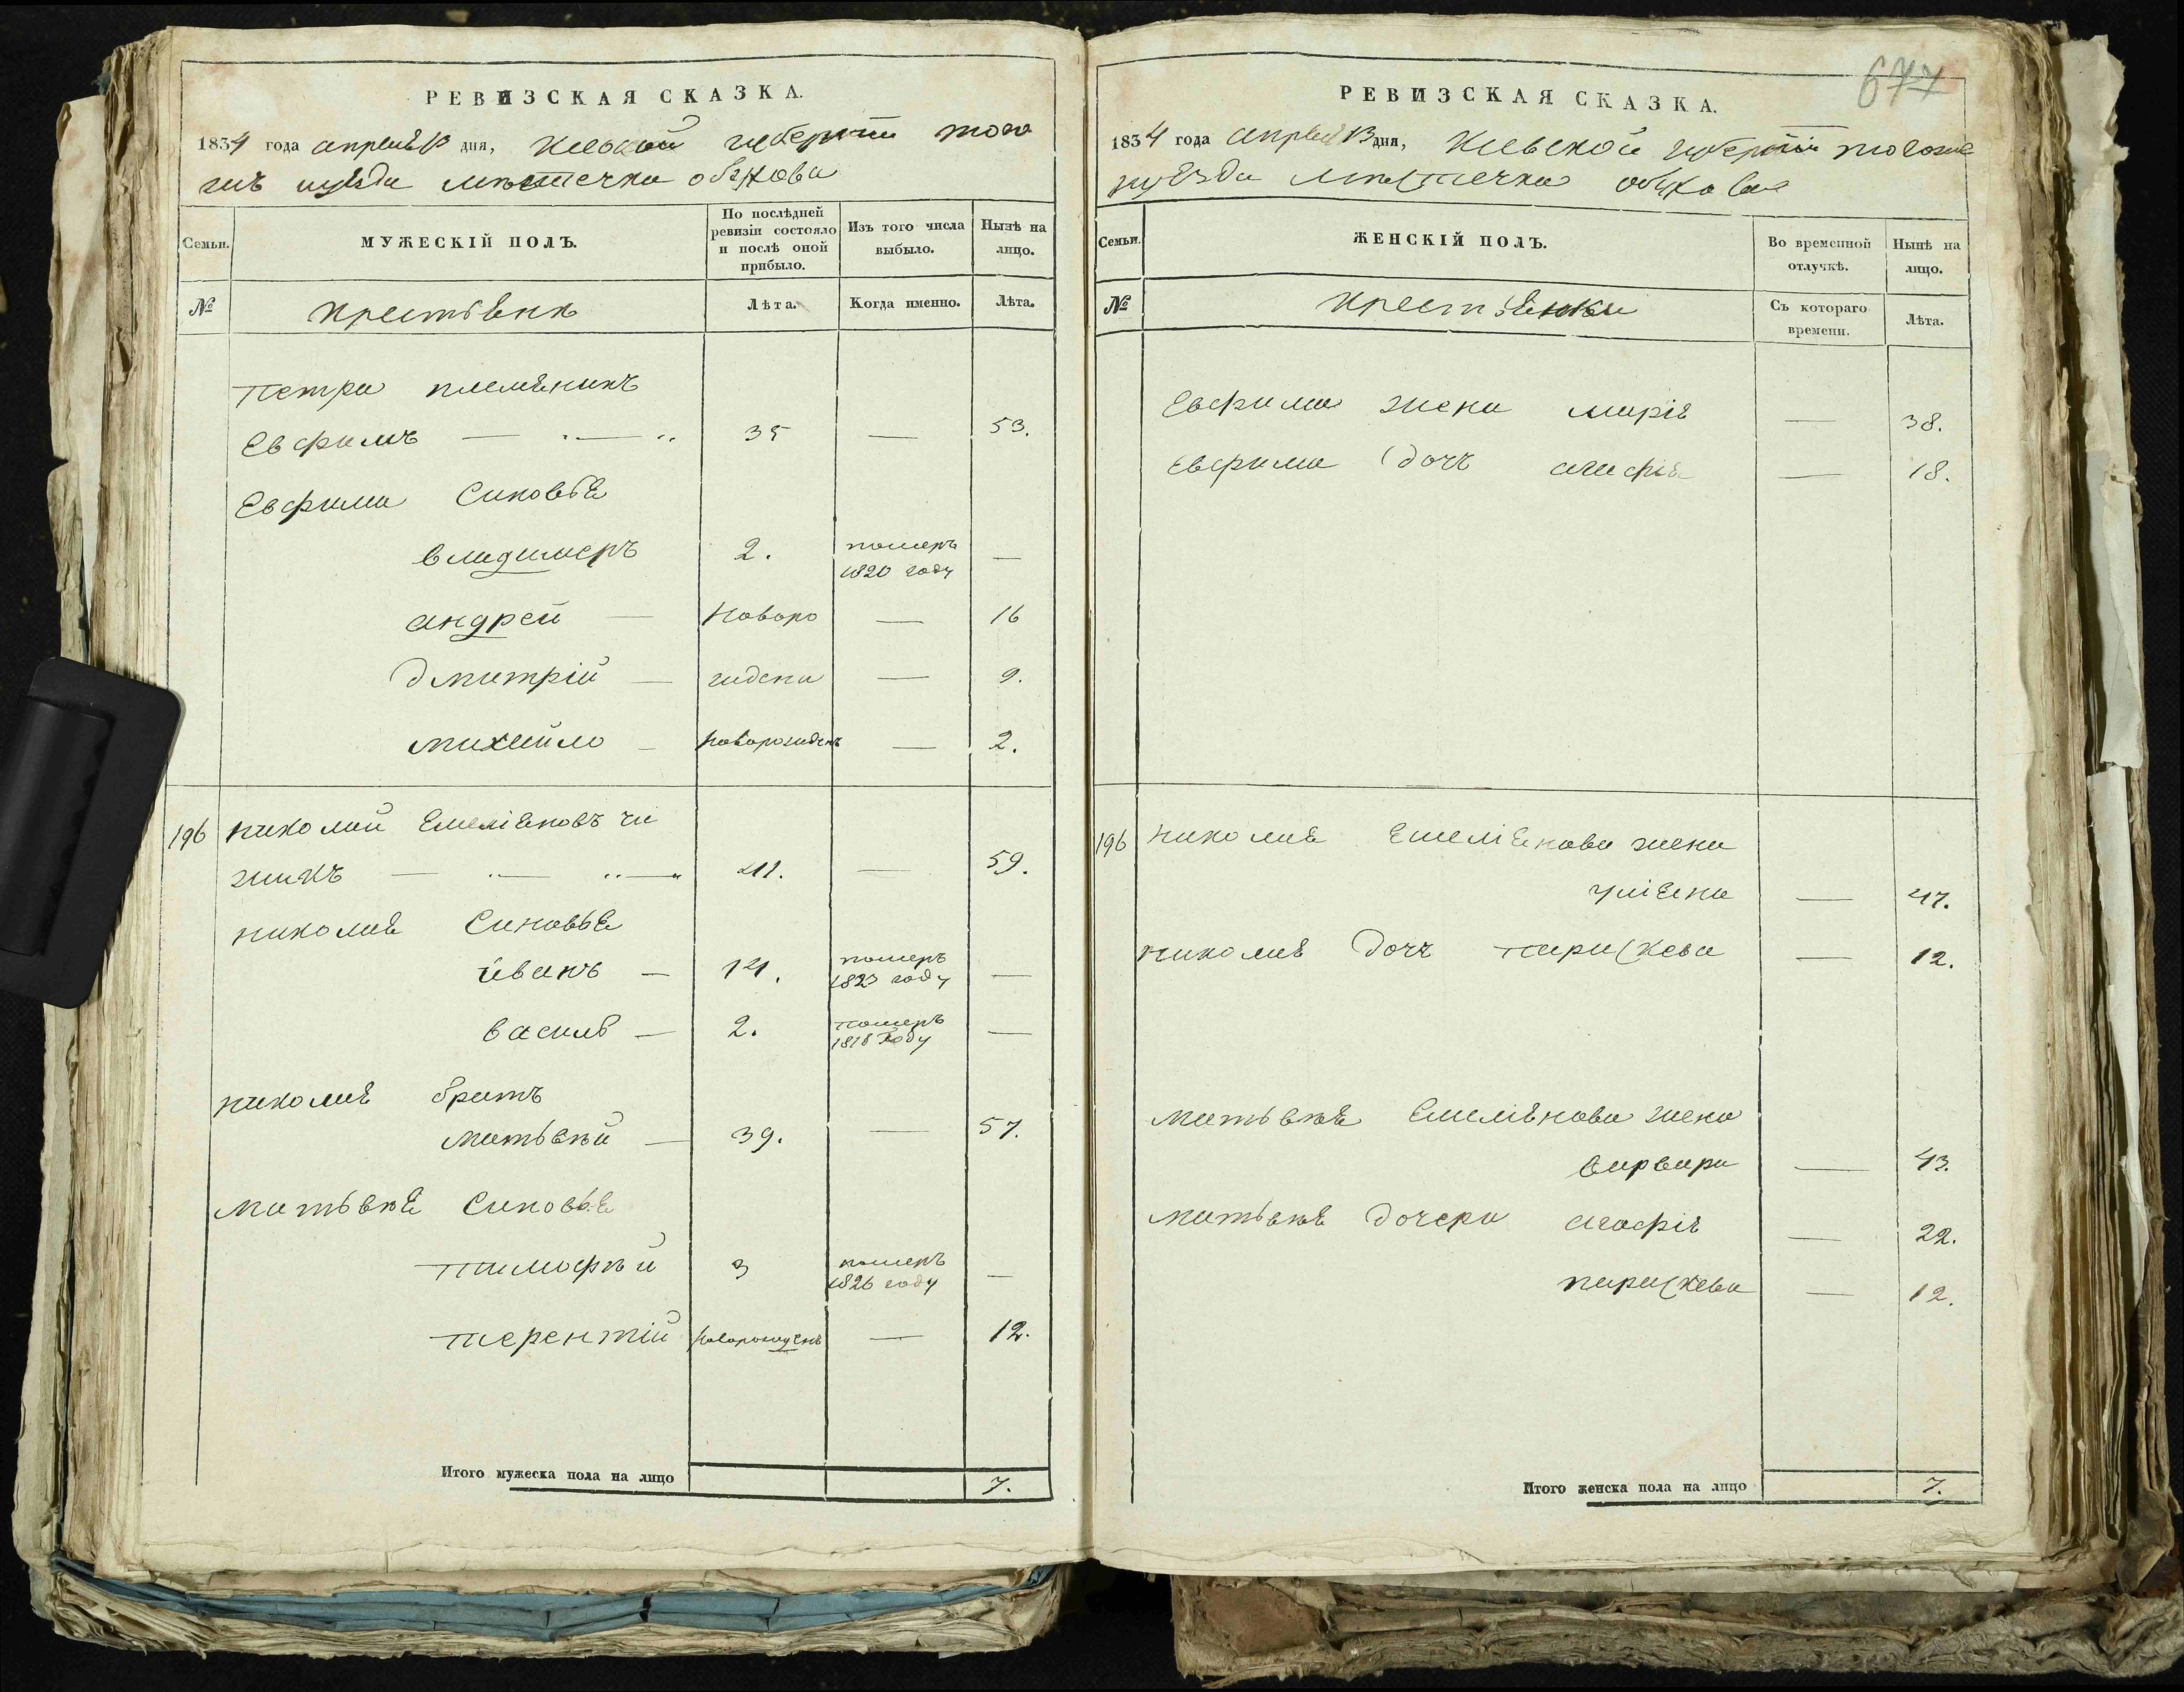 РЕВИЗСКАЯ СКАЗКА.
1834 года апреля 13 дня, Киевской губернии того
жъ уезда местечка обухова
Семьи.
МУЖЕСКІЙ ПОЛЪ.
По послѣдней ревизіи состояло и послѣ оной прибыло.
Изъ того числа выбыло.
Нынѣ на лицо.
№
крестьяне
Лѣта.
Когда именно.
Лѣта.
Петра племѣникъ
Евфимъ — — 35 — 53.
Евфима Синовья
владимеръ 2. померъ 1820 году —
андрей — Новоро — 16
Дмитрій — ждени — 9.
михайло — новорожденъ — 2.
196 николай Емеліяновъ чи
жикъ — — — 41. — 59.
николая Синовья
йванъ — 14. померъ 1823 году —
василь — 2. померъ 1818 году —
николая братъ
матьвѣй — 39. — 57.
матьвѣя Синовья
тимофѣй 3 померъ 1826 году —
терентій новорожденъ — 12.
Итого мужеска пола на лицо 7.
677
РЕВИЗСКАЯ СКАЗКА.
1834 года апреля 13 дня, Киевской губерніи тогожъ
уѣзда местечка обухова
Семьи.
ЖЕНСКІЙ ПОЛЪ.
Во временной отлучкѣ.
Нынѣ на лицо.
№
крестьянки
Съ котораго времени.
Лѣта.
Евфима жена марія — 38.
Евфима дочь агафія — 18.
196 николая Емеліянова жена
уліяна — 47.
николая дочь параскева — 12.
матьвѣя Емелянова жена
варвара — 43.
матьвѣя дочери агафія — 22.
параскева — 12.
Итого женска пола на лицо 7.